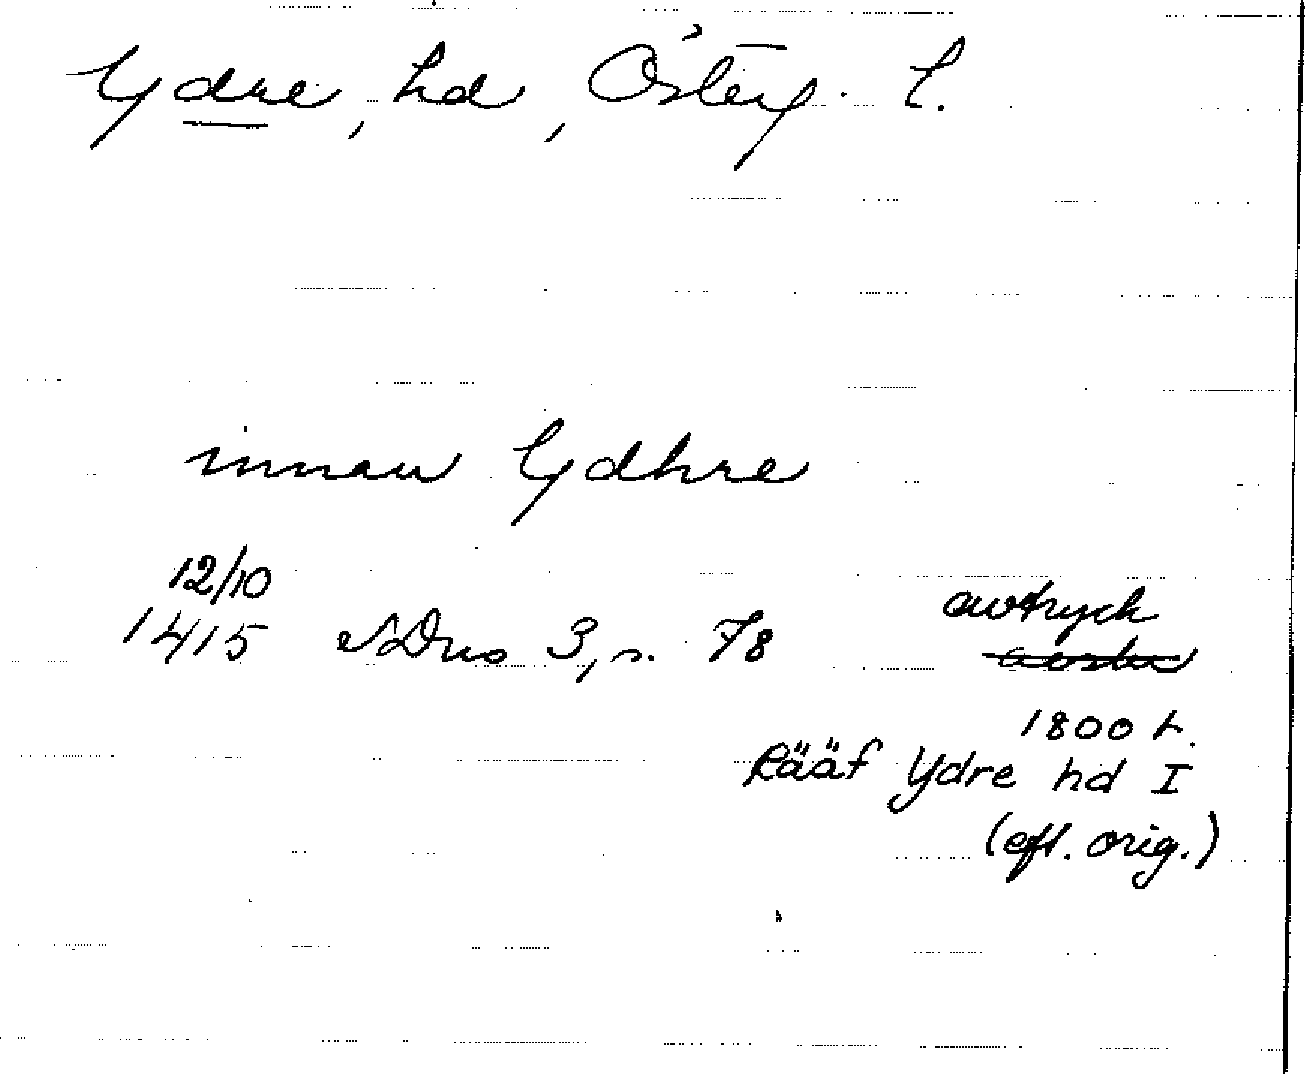 Ydre, hd, Österg. L.
innan Ydhre
12/10
1415 SDns 3, s. 78
avtryck
1800 t.
Rääf Ydre hd I
(eft. orig.)